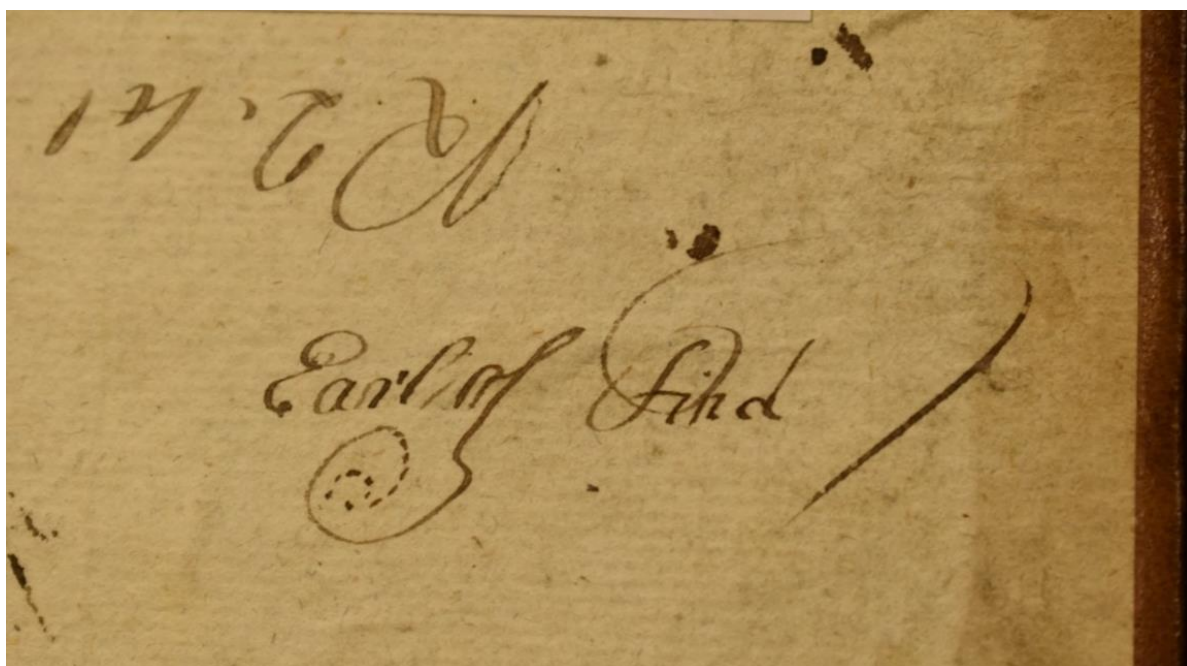 R 2. 41
Earl of Find